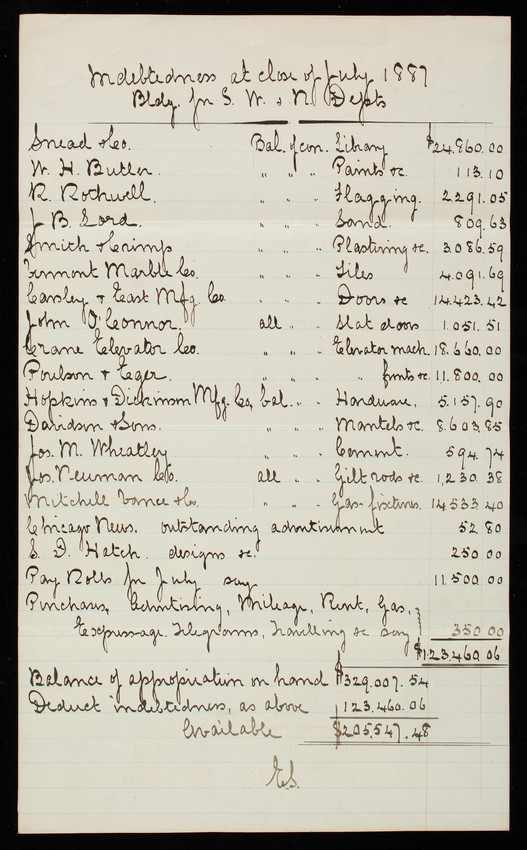 Indebtedness at close of July 1887
Bldg. for S. W. & N. Depts
Snead & Co. Bal. of con. Library $24.860.00
W. H. Butler. " " " Paints &c. 113.10
R. Rothwell. " " " Flagging. 2291.05
J B. Lord. " " " Sand. 809.63
Smith & Crimp " " " Plastering &c. 3.086.59
Vermont Marble Co. " " " Tiles 4.091.69
Carsley & East Mfg. Co. " " " Doors &c 14.423.42
John O'Connor. all " " Slat doors 1.051.51
Crane Elevator Co. " " " Elevator mach. 18.660.00
Poulson & Eger. " " " " fronts &c. 11.800.00
Hopkins & Dickinson Mfg. Co. bal. " " Hardware. 5.157.90
Davidson & Sons. " " " Mantels &c. 8.603.85
Jos. M. Wheatley " " " Cement. 594.74
Jos. Neuman & Co. all " " Gilt rods &c. 1,230.38
Mitchell Vance & Co. " " " Gas-fixtures. 14533.40
Chicago News. outstanding advertisement 52 80
S. D. Hatch. designs &c. 250 00
Pay Rolls for July say 11.500 00
Purchases, Advertising, Mileage, Rent, Gas,
Expressage, Telegrams, Travelling &c say 350.00
$123.460.06
Balance of appropriation on hand $329.007.54
Deduct indebtedness, as above 123.460.06
Available $205.547.48